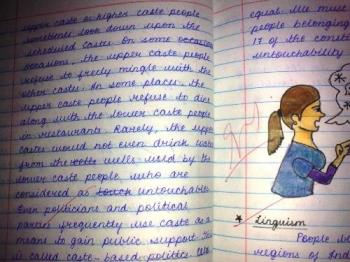 upper caste or higher caste people
sometimes look down upon the
scheduled castes. On some occasions
occasions, the upper caste people
refuse to freely mingle with the
other castes. In some places, the
upper caste people refuse to dine
along with the lower caste people
in restaurants. Rarely, the upper
castes would not even drink water
from the wells used by the
lower caste people who are
considered as untouchables
Even politicians and political
parties frequently use caste as a
means to gain public support. This
is called caste-based politics. We
equal. We must
people belonging
17 of the const
untouchability
* Linguism
People be
regions of Ind